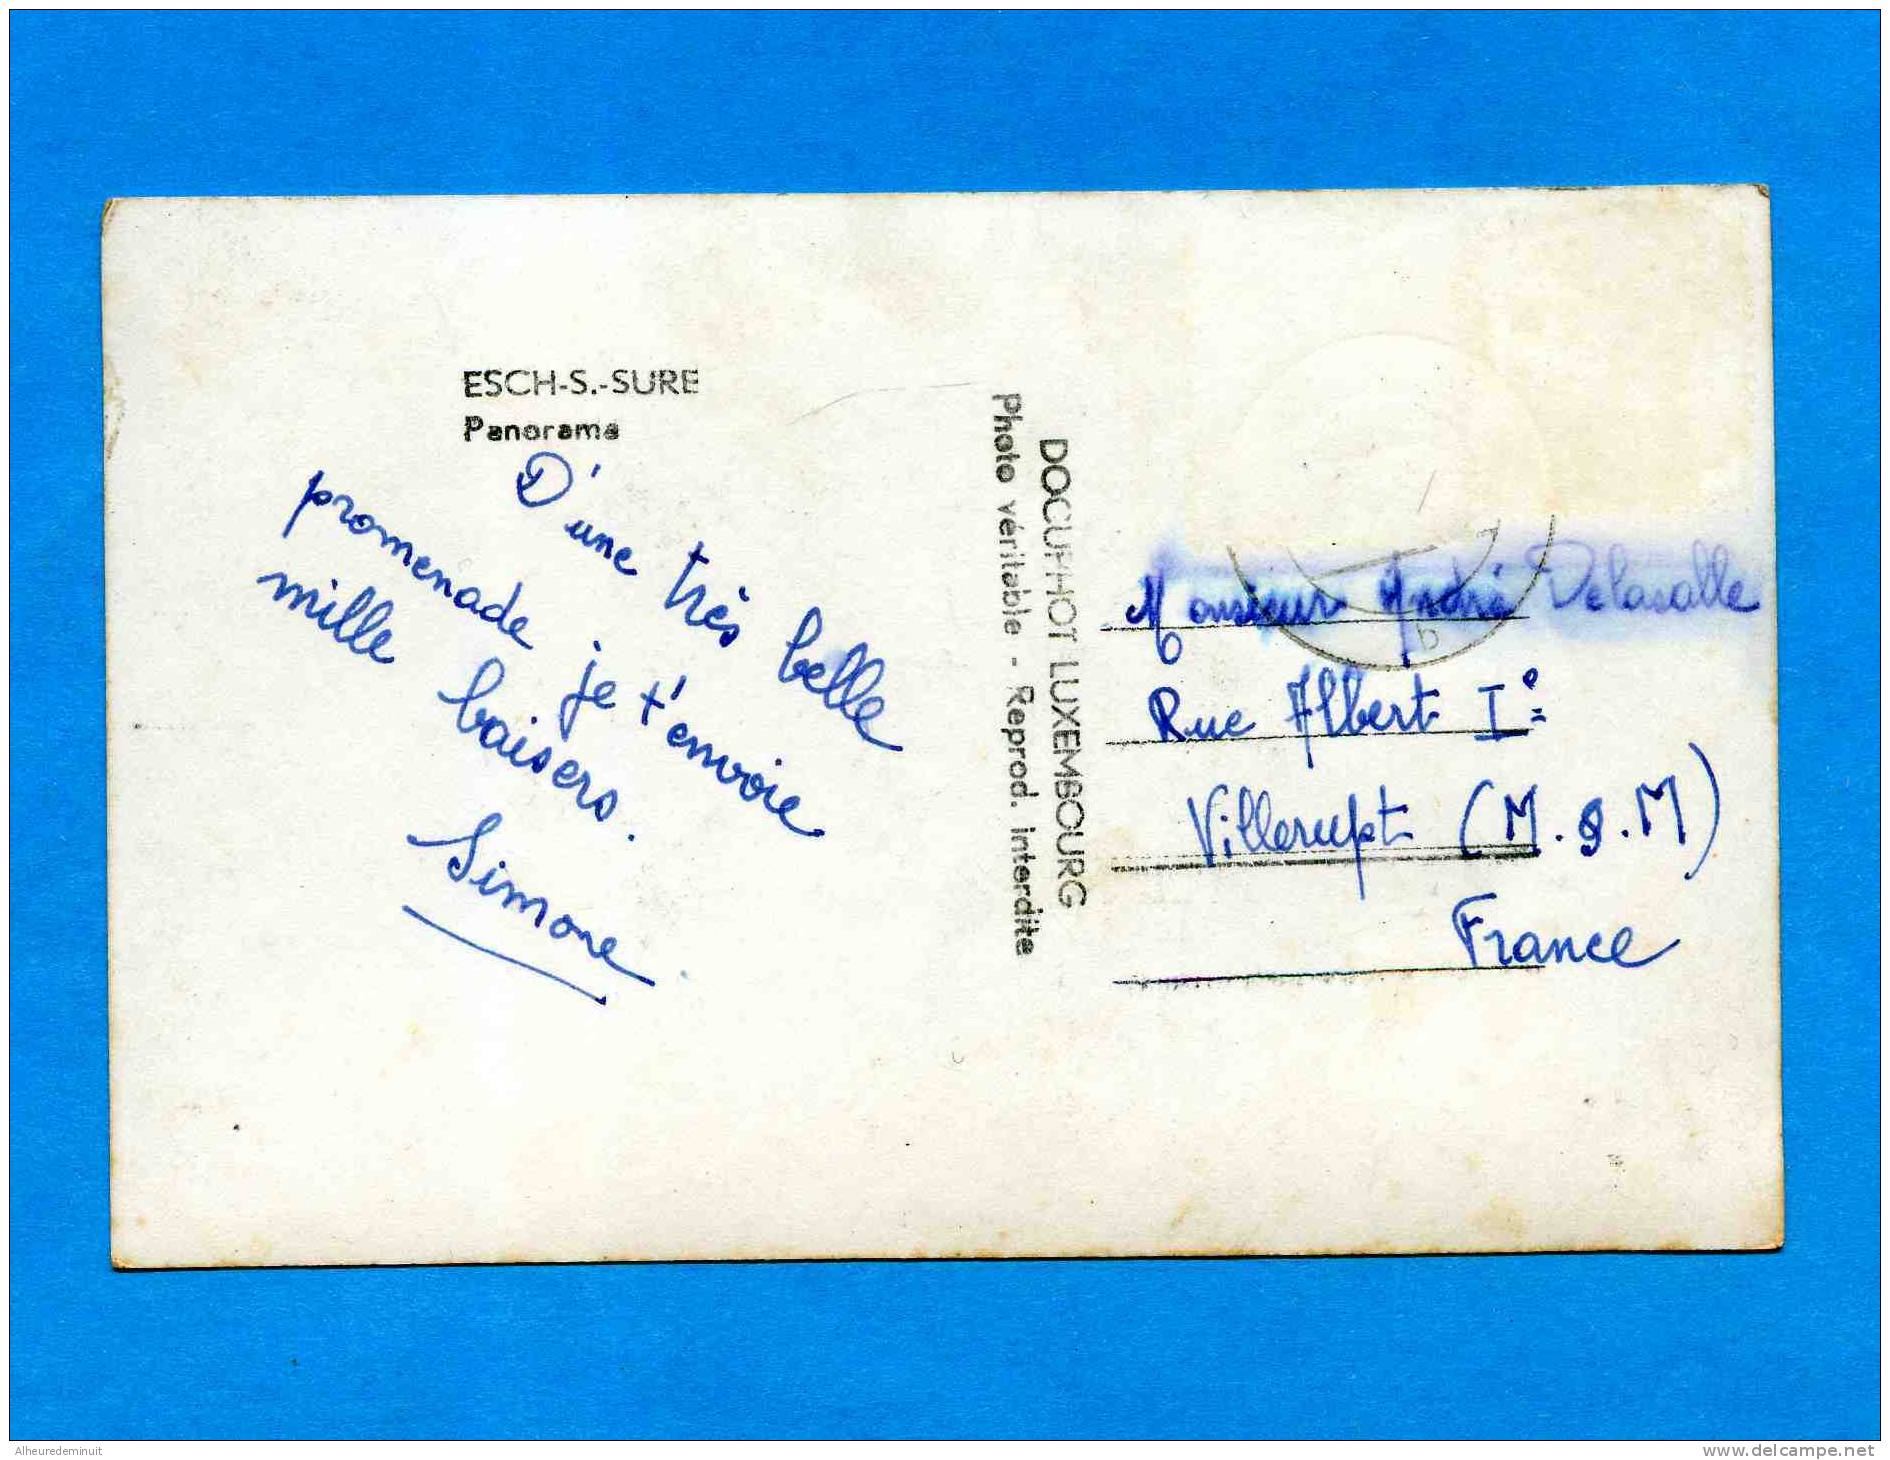 ESCH-S.-SURE
Panorama
D'une très belle
promenade je t'envoie
mille baisers.
Simone
DOCUPHOT LUXEMBOURG
Photo véritable - Reprod. interdite
Monsieur André Delasalle
b
Rue Albert Ie
Villerupt (M.&.M)
France
Alheuredeminuit
www.delcampe.net